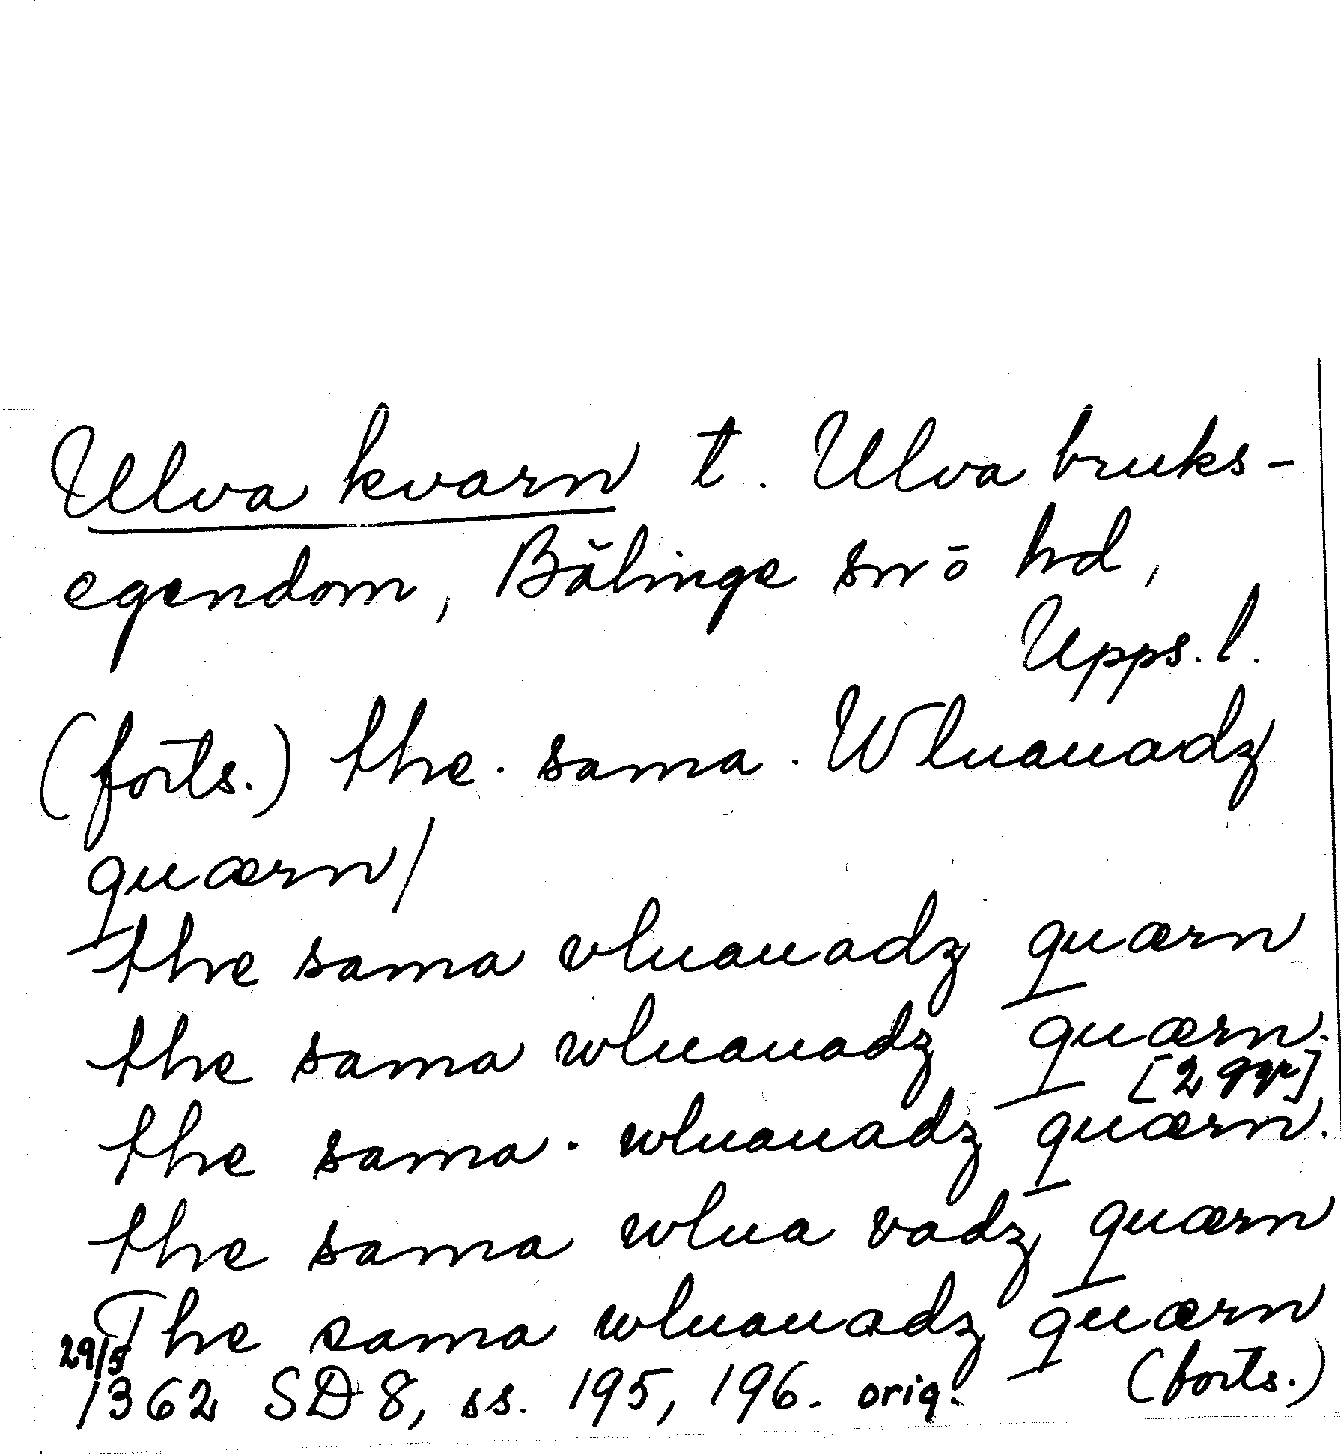 Ulva kvarn t. Ulva bruks-
egendom, Bälinge sn o hd,
Upps. l.
(forts.) the. sama. Wluauadz
quærn/
the sama vluauadz quærn
the sama wluauadz quærn.
[2 ggr]
the sama. wluauadz quærn.
the sama wlua vadz quærn
The sama wluauadz quærn
29/5
1362 SD 8, ss. 195, 196. orig. (forts.)